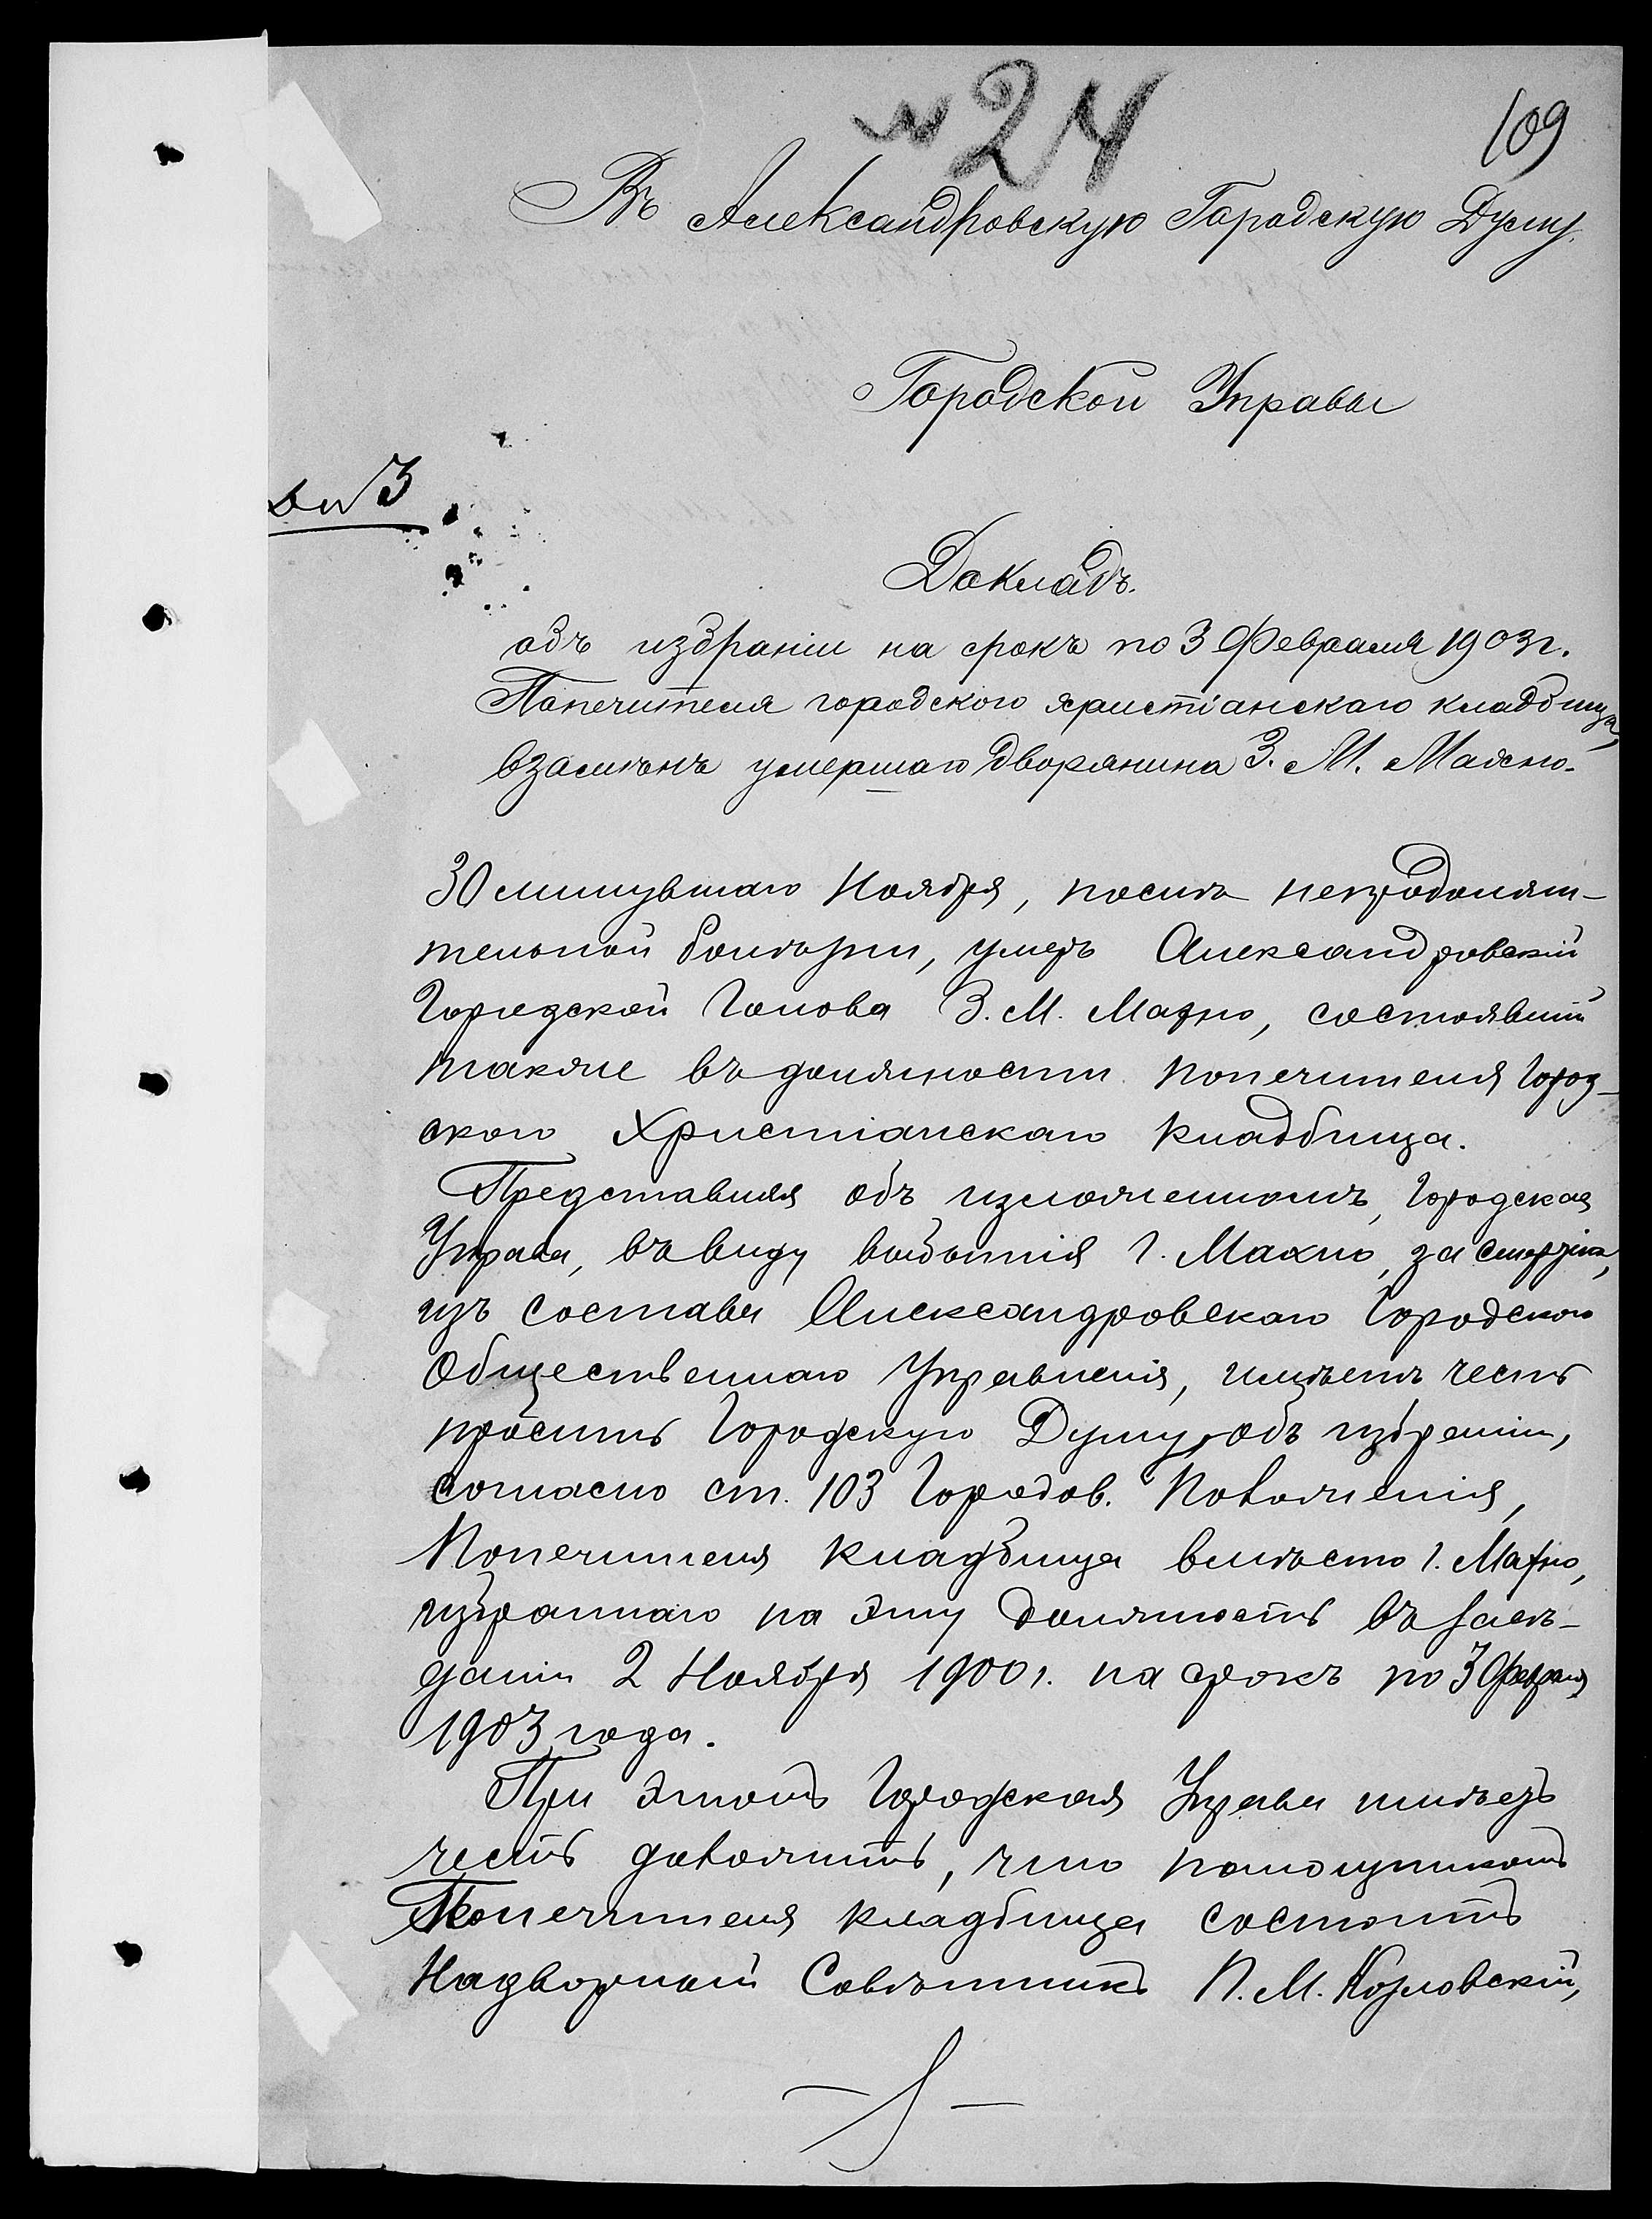 № 24
109
Въ Александровскую Городскую Думу.
Городской Управы
№ 3
Докладъ.
объ избраніи на срокъ по 3 Февраля 1903 г.
Попечителя городского христіанскаго кладбища,
взамѣнъ умершаго дворянина З. М. Махно.
30 минувшаго Ноября, послѣ непродолжи-
тельной болѣзни, умеръ Александровскій
Городской Голова З. М. Махно, состоявшій
также въ должности попечителя Город-
ского Христіанскаго кладбища.
Представляя объ изложенномъ, Городская
Управа, въ виду выбытія г. Махно, за смертію,
изъ состава Александровскаго Городского
Общественнаго Управленія, имѣетъ честь
просить Городскую Думу, объ избраніи,
согласно ст. 103 Городов. Положенія,
Попечителя кладбища вмѣсто г. Махно,
избраннаго на эту должность въ засѣ-
даніи 2 Ноября 1900 г. на срокъ по 3 Февраля
1903 года.
При этомъ Городская Управа имѣетъ
честь доложить, что помощникомъ
Попечителя кладбища состоитъ
Надворный Совѣтникъ П. М. Козловскій,